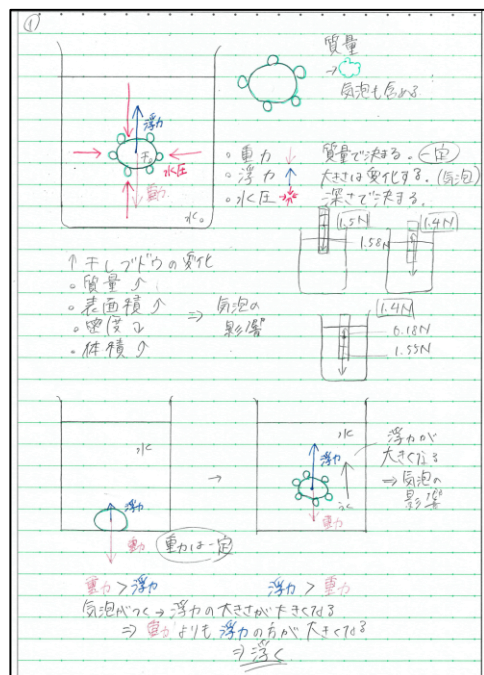 ①
質量
→
気泡も含める
浮力
干し
水圧
重力
水。
・重力 ↓ 質量で決まる。一定
・浮力 ↑ 大きさは変化する。(気泡)
・水圧 深さで決まる。
1.5N
1.4N
1.58N
↑干しブドウの変化
・質量 ↑
・表面積 ↑
・密度 ↓
・体積 ↑
⇒ 気泡の
影響
1.4N
0.18N
1.55N
水
浮力が
大きくなる
⇒ 気泡の
影響
浮力
浮力
→
重力
重力は一定
重力
重力 > 浮力
浮力 > 重力
気泡がつく → 浮力の大きさが大きくなる
⇒ 重力よりも浮力の方が大きくなる
⇒ 浮く